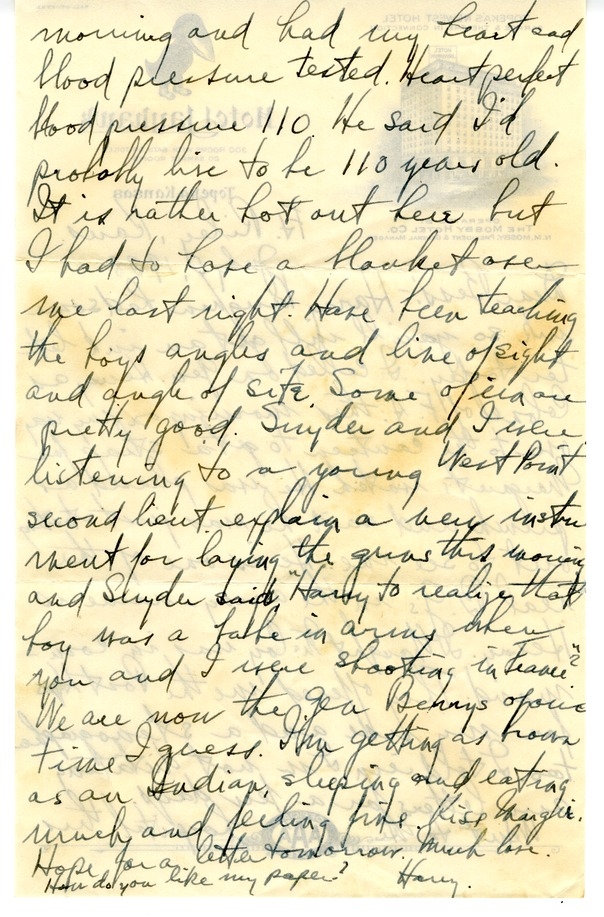 morning and had my heart and
blood pressure tested. Heart perfect
blood pressure 110. He said I'd
probably live to be 110 years old.
It is rather hot out here but
I had to have a blanket over
me last night. Have been teaching
the boys angles and line of sight
and angle of site. Some of em are
pretty good. Snyder and I were
listening to a young West Point
second lieut. explain a new instru
ment for laying the guns this morning
and Snyder said, "Harry to realize that
boy was a babe in arms when
you and I were shooting in France"?
We are now the Gen Bennys of our
time I guess. I'm getting as brown
as an Indian, sleeping and eating
much and feeling fine. Kiss Margie.
Hope for a letter tomorrow. Much love.
How do you like my paper? Harry.